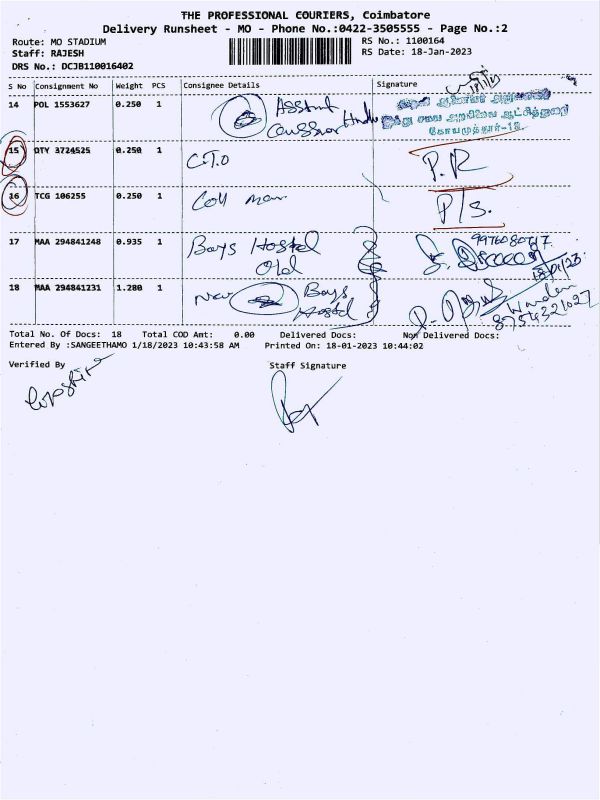 THE PROFESSIONAL COURIERS, Coimbatore
Delivery Runsheet - MO - Phone No.:0422-3505555 - Page No.:2
Route: MO STADIUM
RS No.: 1100164
Staff: RAJESH
RS Date: 18-Jan-2023
DRS No.: DCJB110016402
S No Consignment No Weight PCS Consignee Details Signature
14 POL 1553627 0.250 1 Hindu
கோயமுத்தூர்-18.
15 QTY 3724525 0.250 1 C.T.O P.R
16 TCG 106255 0.250 1 P/s.
17 MAA 294841248 0.935 1 Boys Hostel
Old 18/01/23
18 MAA 294841231 1.280 1 New Boys
Hostel Warden
8754321027
Total No. Of Docs: 18 Total COD Amt: 0.00 Delivered Docs: Non Delivered Docs:
Entered By :SANGEETHAMO 1/18/2023 10:43:58 AM Printed On: 18-01-2023 10:44:02
Verified By Staff Signature